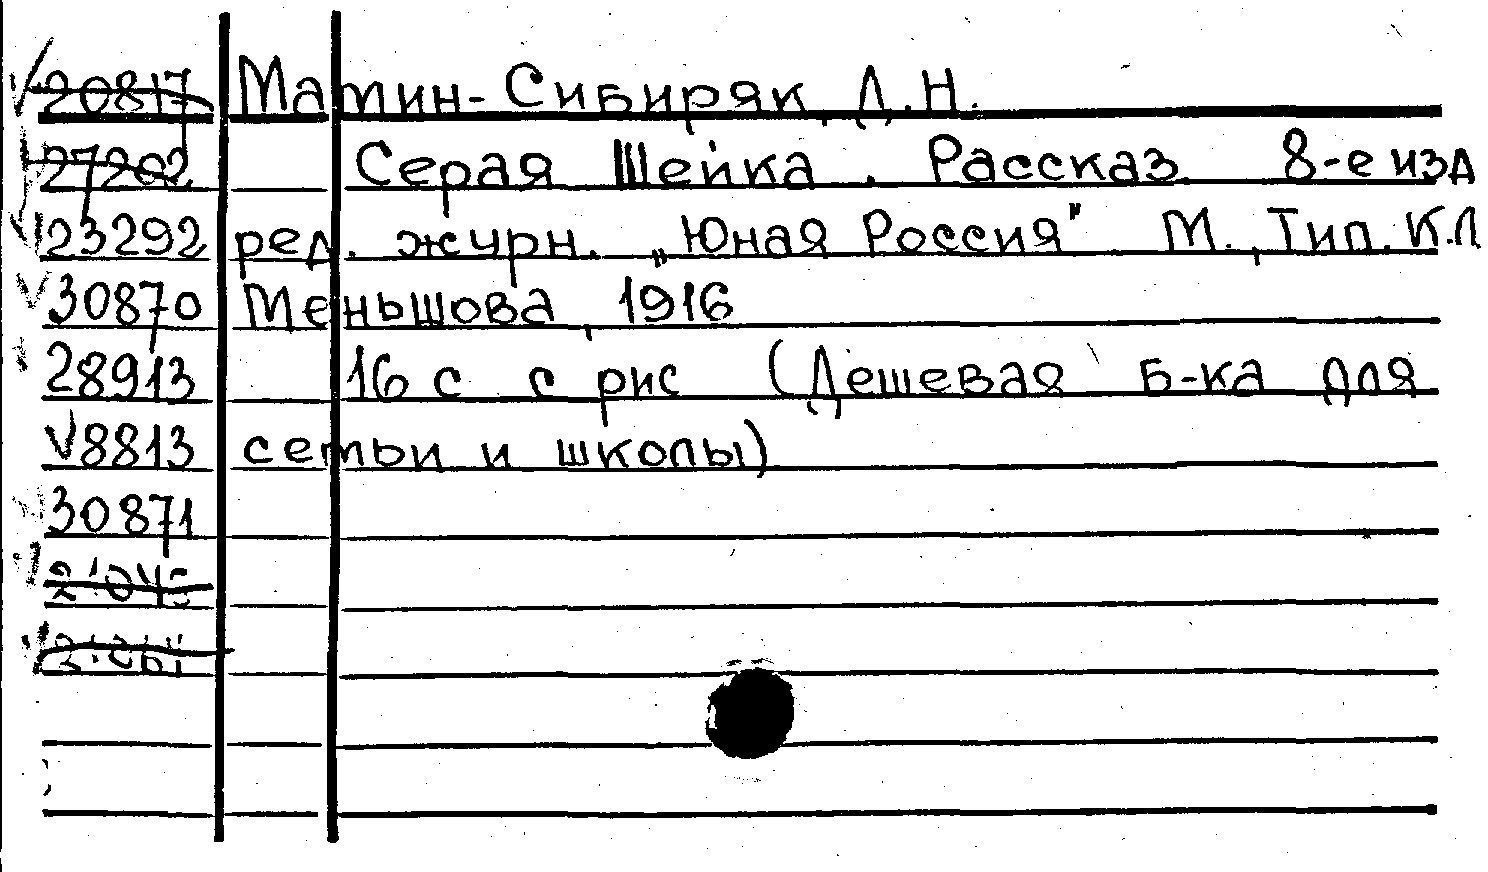 20817 Мамин-Сибиряк, Д.Н.
27202 Серая Шейка. Рассказ 8-е изд
23292 ред. журн. „Юная Россия" М., Тип. К.Л
30870 Меньшова, 1916
28913 16 с с рис (Дешевая б-ка для
8813 семьи и школы)
30871